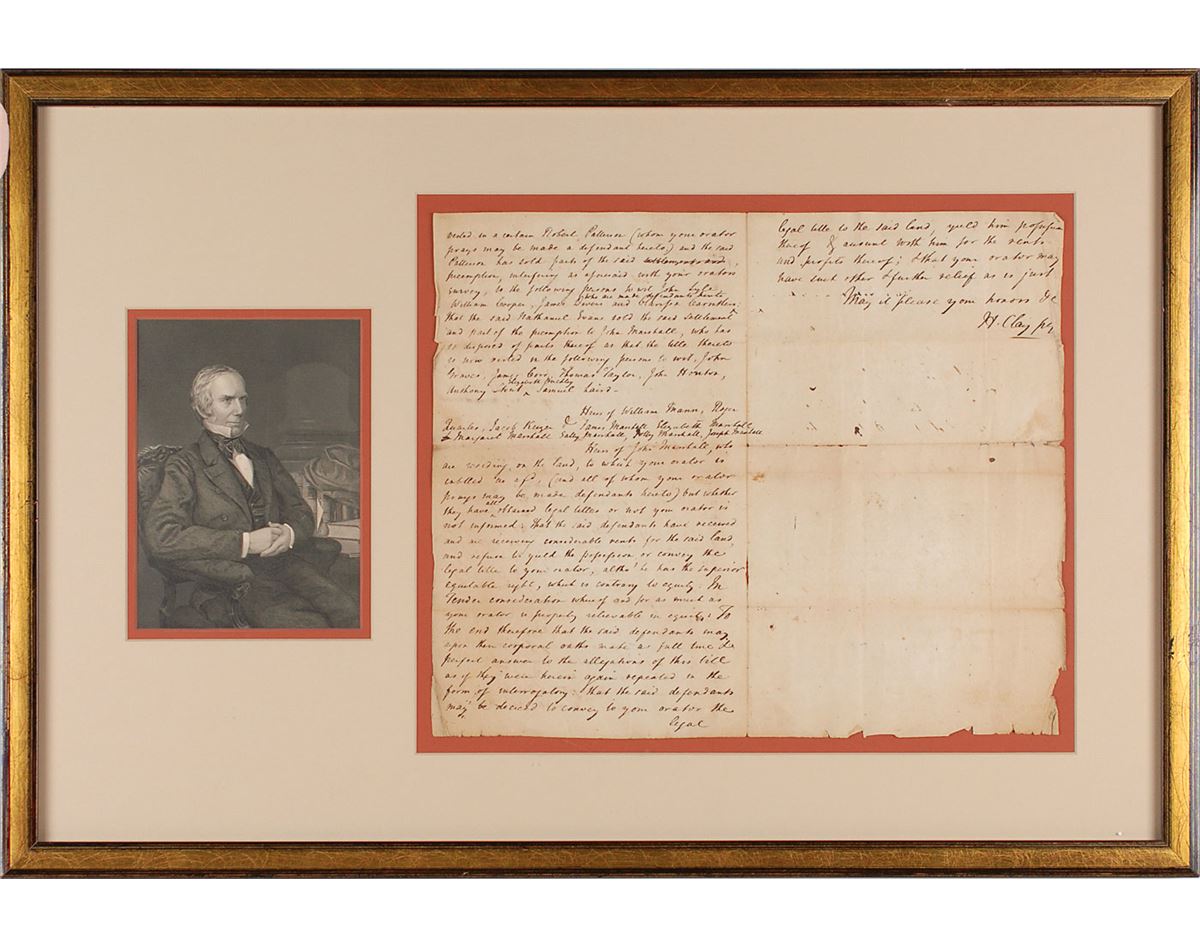 vested in a certain Robert Patterson (whom your orator
prays may be made a defendant hereto) and the said
Patterson has sold parts of the said settlement and
preemption, interfering as aforesaid with your orators
survey, to the following persons to wit, John Lyle
William Cooper, James and
who are made defendants hereto
that the said Nathaniel Evans sold the said settlement
and part of the preemption to John Marshall, who has
so disposed of parts thereof as that the title thereto
is now vested in the following persons to wit, John
Graves, James Thomas Taylor, John
Elizabeth
Anthony Samuel Laird –
Heirs of William Mann, Roger
Quarles, Jacob & James Marshall Elizabeth Marshall
& Margaret Marshall Sally Marshall, Polly Marshall, Joseph Marshall
Heirs of John Marshall, who
are residing on the land, to which your orator is
entitled as afsd, (and all of whom your orator
prays may be made defendants hereto) but whether
they have all obtained legal titles or not your orator is
not informed: that the said defendants have received
and are receiving considerable rents for the said land,
and refuse to yield the possession or convey the
legal title to your orator, altho' he has the superior
equitable right, which is contrary to equity. In
tender consideration whereof and for as much as
your orator is properly relievable in equity: To
the end therefore that the said defendants may
upon their corporal oaths make a full true &
perfect answer to the allegations of this bill
as if they were herein again repeated in the
form of interrogatory: that the said defendants
may be decreed to convey to your orator the
legal
legal title to the said land, yield him possession
thereof & account with him for the rents
and profits thereof; & that your orator may
have such other & further relief as is just
May it please your honors &c
H. Clay